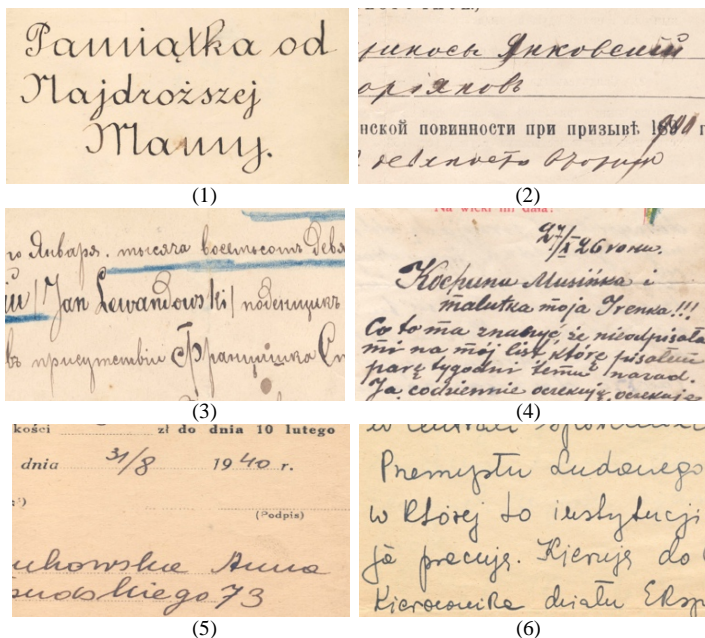 Pamiątka od
Najdroższej
Mamy.
(1)
Янковский
нской повинности при призывѣ
(2)
Января. тысяча восемьсотъ девя
Jan Lewandowski / поденщикъ
въ присутствіи Францишка
(3)
Na wieki mi dała.
27/I 26 roku.
Kochana Musińka i
malutka moja Irenka!!!
Co to ma znaczyć, że nieodpisała
mi na mój list, które pisałem
parę tygodni temu nazad.
Ja codziennie oczekuję, oczekuję
(4)
kości zł do dnia 10 lutego
dnia 31/8 1940 r.
(Podpis)
ukowska Anna
sudskiego 73
(5)
w centrali
Przemysłu Ludowego
w której to instytucji
ja pracuję. Kieruję do
Kierownika działu Eksp
(6)